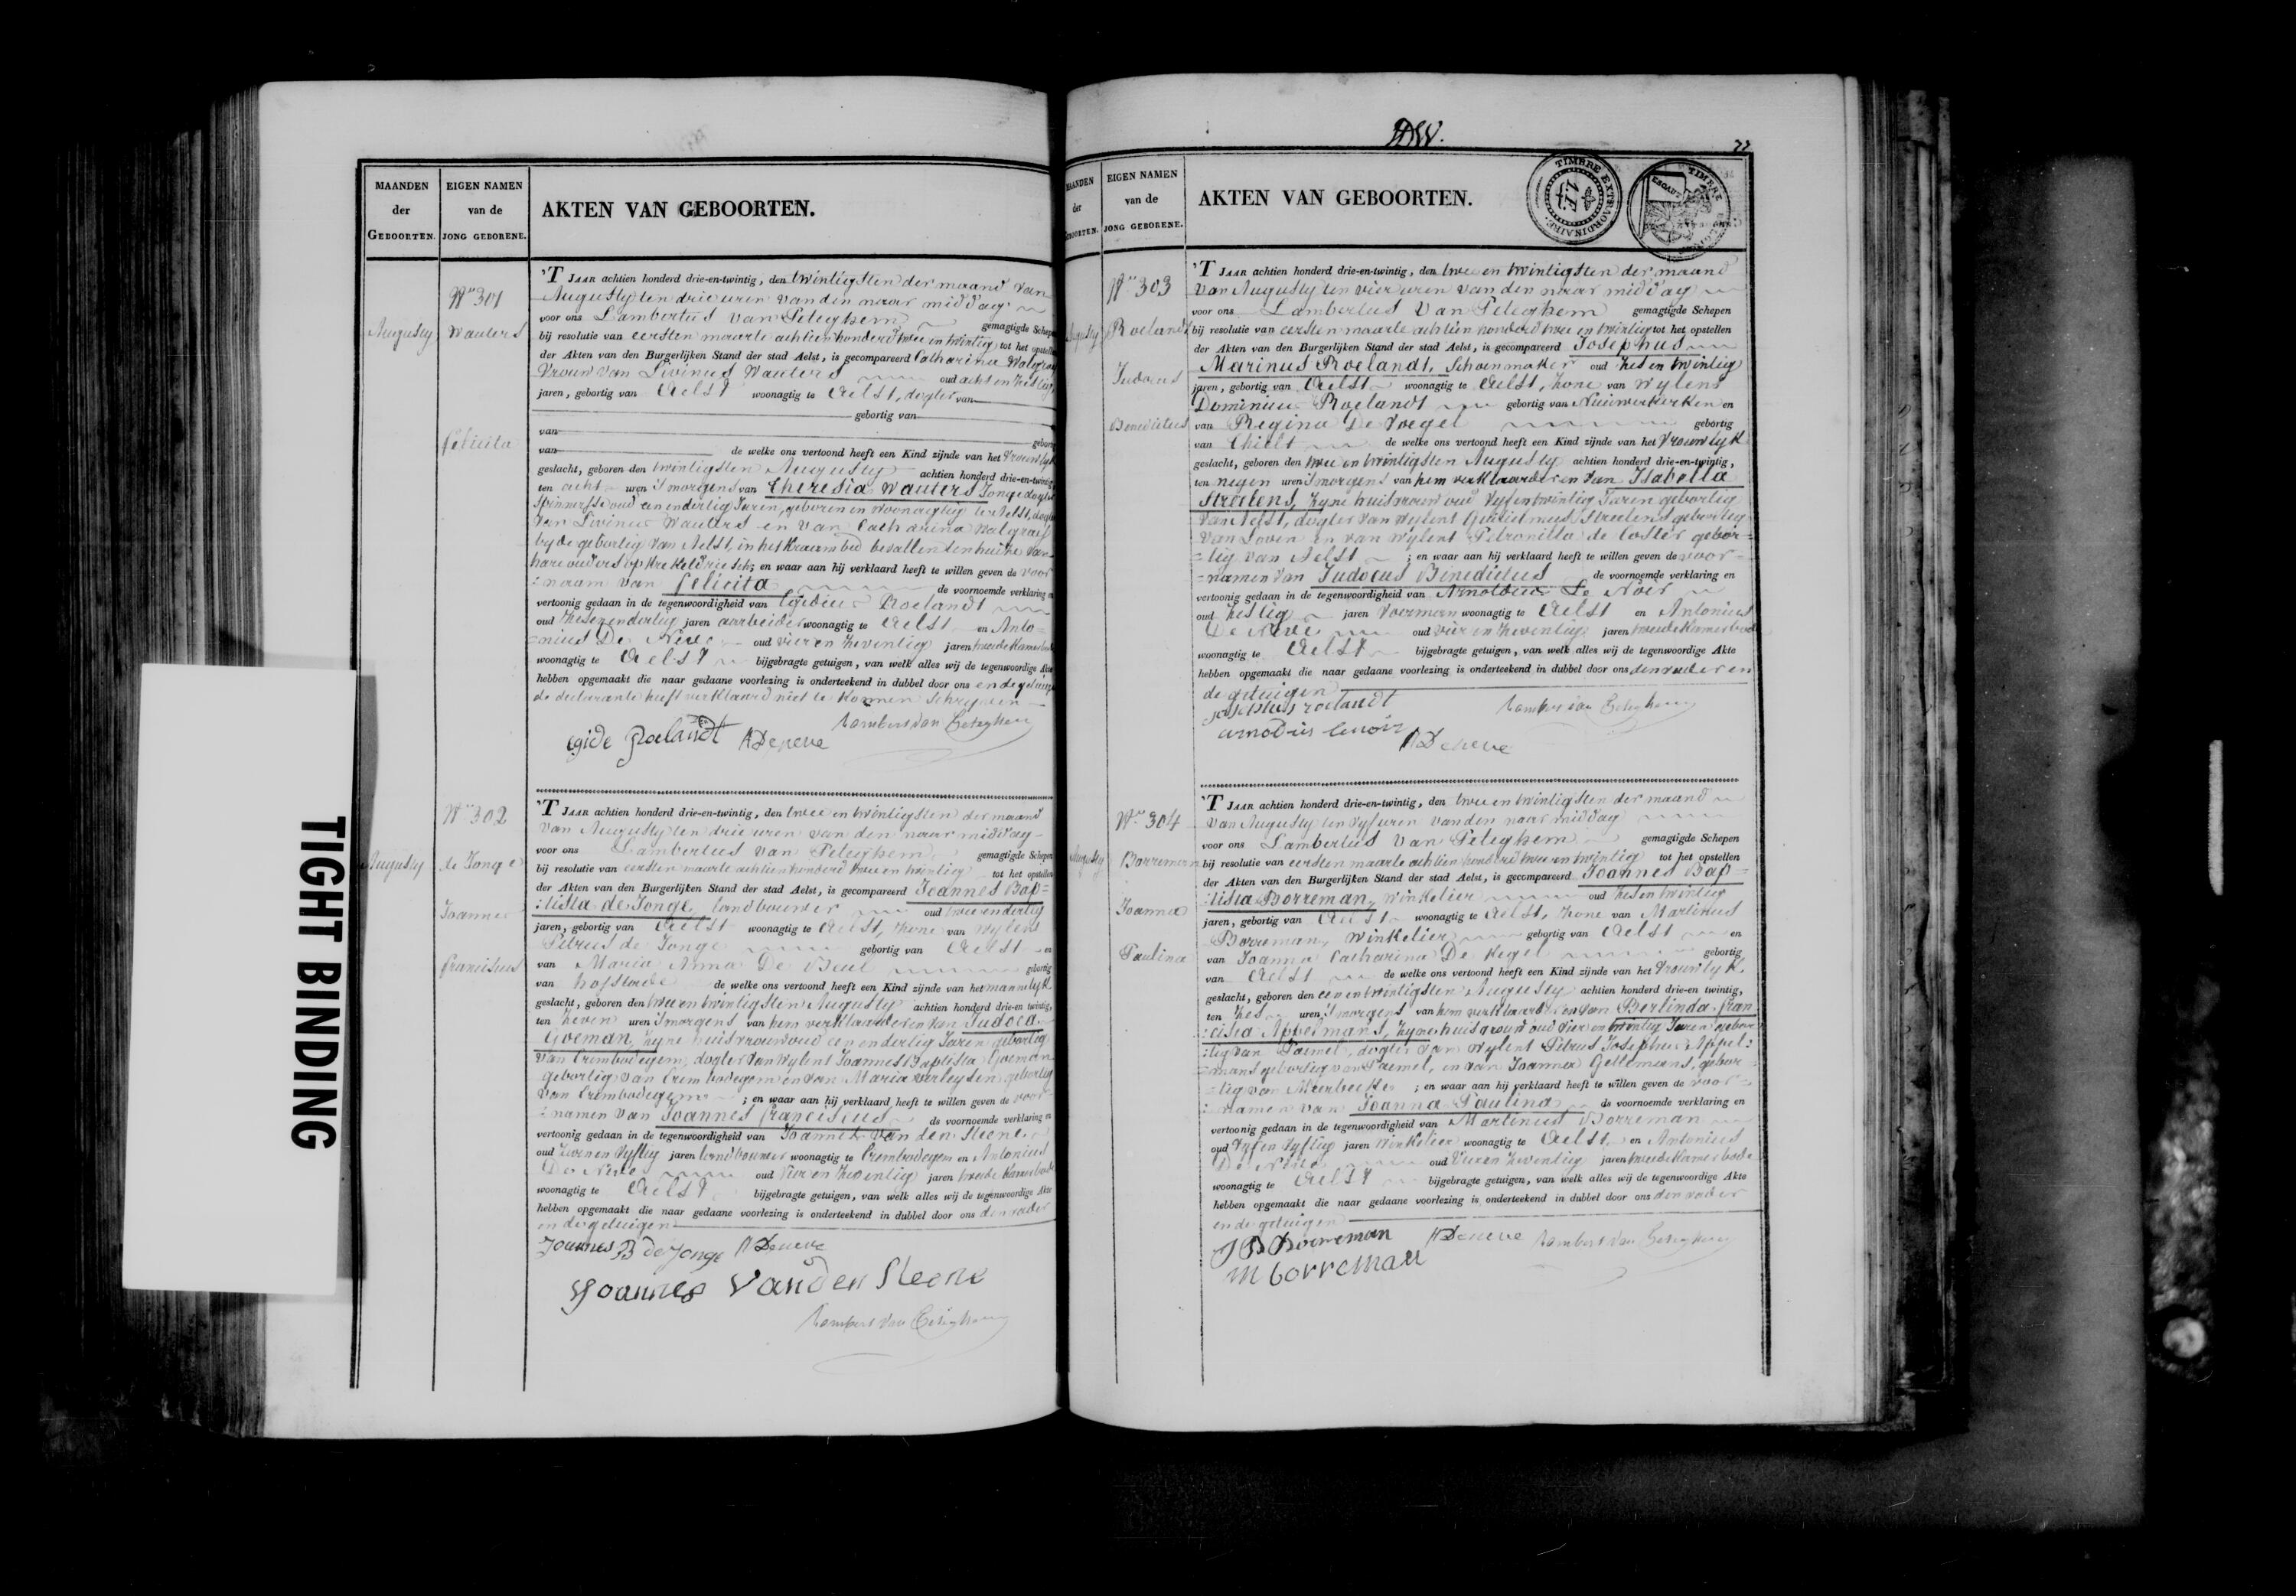 TIGHT BINDING
MAANDEN
der
GEBOORTEN.
EIGEN NAMEN
van de
JONG GEBORENE.
AKTEN VAN GEBOORTEN.
No 301
Augusty
Wauters
felicita
'T JAAR achtien honderd drie-en-twintig, den twintigsten der maand van
Augusty ten drie uren van den naar middag
voor ons Lambertus Van Peteghem gemagtigde Schepen
bij resolutie van eersten maarte achtien honderd twee en twintig tot het opstellen
der Akten van den Burgerlijken Stand der stad Aelst, is gecompareerd Catharina Walgraef
Vrouw van Livinus Wauters oud acht en zestig
jaren, gebortig van Aelst woonagtig te Aelst, dogter van
gebortig van
van
gebortig
van de welke ons vertoond heeft een Kind zijnde van het vrouwlyk
geslacht, geboren den twintigsten Augusty achtien honderd drie-en-twintig
ten acht uren 's morgens van Theresia Wauters Jonge dogter
Spinnersse oud een en dertig Jaren, geboren en woonagtig te Aelst, dogter
van Livinus Wauters en van Catharina Walgraef
beyde gebortig van Aelst, in het Kraambed bevallen ten huize van
hare ouders op ; en waar aan hij verklaard heeft te willen geven de voor
naam van felicita de voornoemde verklaring en
vertoonig gedaan in de tegenwoordigheid van Egidius Roelandt
oud zes en dertig jaren aarbeider woonagtig te Aelst en Anto=
=nius De Neve oud vier en zeventig jaren tweede Kamerbode
woonagtig te Aelst bijgebragte getuigen, van welk alles wij de tegenwoordige Akte
hebben opgemaakt die naar gedaane voorlezing is onderteekend in dubbel door ons en de getuigen
de declarante heeft verklaard niet te konnen schryven
Lambert Van Peteghem
egide Roelandt ADeneve
No 302
Augusty
de Jonge
Joannes
franciscus
'T JAAR achtien honderd drie-en-twintig, den twee en twintigsten der maand
van Augusty ten drie uren van den naar middag
voor ons Lambertus Van Peteghem gemagtigde Schepen
bij resolutie van eersten maarte achtien honderd twee en twintig tot het opstellen
der Akten van den Burgerlijken Stand der stad Aelst, is gecompareerd Joannes Bap=
:tista de Jonge, landbouwer oud twee en dertig
jaren, gebortig van Aelst woonagtig te Aelst, zone van wylens
Petrus de Jonge gebortig van Aelst en
van Maria Anna De Beul gebortig
van hofstade de welke ons vertoond heeft een Kind zijnde van het mannelyk
geslacht, geboren den twee en twintigsten Augusty achtien honderd drie-en twintig,
ten zeven uren 's morgens van hem verklaarder en van Judoca
Goeman, zyne huisvrouw oud een en dertig Jaren gebortig
van Erembodegem, dogter van wylent Joannes Baptista Goeman
gebortig van Erembodegem en van Maria verleysen gebortig
van Erembodegem ; en waar aan hij verklaard heeft te willen geven de voor
:namen van Joannes franciscus ds voornoemde verklaring en
vertoonig gedaan in de tegenwoordigheid van Joannes Van den Steene
oud zeven en vyftig jaren landbouwer woonagtig te Erembodegem en Antonius
De Neve oud vier en zeventig jaren tweede Kamerbode
woonagtig te Aelst bijgebragte getuigen, van welk alles wij de tegenwoordige Akte
hebben opgemaakt die naar gedaane voorlezing is onderteekend in dubbel door ons den vader
en de getuigen
Joannes B de Jonge ADeneve
Joannes Vanden Steene
Lambert Van Peteghem
22
MAANDEN
der
GEBOORTEN.
EIGEN NAMEN
van de
JONG GEBORENE.
AKTEN VAN GEBOORTEN.
TIMBRE EXTRAORDINAIRE
ESCAUT
TIMBRE
No 303
Augusty
Roelandt
Judocus
Benedictus
'T JAAR achtien honderd drie-en-twintig, den twee en twintigsten der maand
van Augusty ten vier uren van den naar middag
voor ons Lambertus Van Peteghem gemagtigde Schepen
bij resolutie van eersten maarte achtien honderd twee en twintig tot het opstellen
der Akten van den Burgerlijken Stand der stad Aelst, is gecompareerd Josephus
Marinus Roelandt, Schoenmaker oud zes en twintig
jaren, gebortig van Aelst woonagtig te Aelst, zone van wylens
Dominicus Roelandt gebortig van Nieuwerkerken en
van Regina De Voegel gebortig
van Thielt de welke ons vertoond heeft een Kind zijnde van het vrouwlyk
geslacht, geboren den twee en twintigsten Augusty achtien honderd drie-en-twintig,
ten negen uren 's morgens van hem verklaarder en van Isabella
Streetens, zyne huisvrouw oud vyf en twintig Jaren gebortig
van Aelst, dogter van wylent Guilielmus Streetens gebortig
van Loven en van wylent Petronilla de Coster gebor=
=tig van Aelst ; en waar aan hij verklaard heeft te willen geven de voor=
=namen van Judocus Benedictus de voornoemde verklaring en
vertoonig gedaan in de tegenwoordigheid van Arnoldus Le Noir
oud zestig jaren voerman woonagtig te Aelst en Antonius
De Neve oud vier en zeventig jaren tweede Kamerbode
woonagtig te Aelst bijgebragte getuigen, van welk alles wij de tegenwoordige Akte
hebben opgemaakt die naar gedaane voorlezing is onderteekend in dubbel door ons den vader en
de getuigen
josephus roelandt Lambert Van Peteghem
arnodus lenoir ADeneve
No 304
Augusty
Borreman
Joanna
Paulina
'T JAAR achtien honderd drie-en-twintig, den twee en twintigsten der maand
van Augusty ten vyf uren van den naar middag
voor ons Lambertus Van Peteghem gemagtigde Schepen
bij resolutie van eersten maarte achtien honderd twee en twintig tot het opstellen
der Akten van den Burgerlijken Stand der stad Aelst, is gecompareerd Joannes Bap=
:tista Borreman, winkelier oud zes en twintig
jaren, gebortig van Aelst woonagtig te Aelst, zone van Martinus
Borreman, winkelier gebortig van Aelst en
van Joanna Catharina De Kegel gebortig
van Aelst de welke ons vertoond heeft een Kind zijnde van het vrouwlyk
geslacht, geboren den een en twintigsten Augusty achtien honderd drie-en twintig,
ten zes uren 's morgens van hem verklaarder en van Berlinda fran
:cisca Appelmans, zyne huisvrouw oud vier en twintig Jaren gebor=
:tig van Pamel, dogter van wylent Petrus Josephus Appel:
=mans gebortig van Pamel, en van Joanna Gettemans, gebor=
=tig van Meerbecke ; en waar aan hij verklaard heeft te willen geven de voor=
:namen van Joanna Paulina ds voornoemde verklaring en
vertoonig gedaan in de tegenwoordigheid van Martinus Borreman
oud vyf en vyftig jaren winkelier woonagtig te Aelst en Antonius
De Neve oud vier en zeventig jaren tweede Kamerbode
woonagtig te Aelst bijgebragte getuigen, van welk alles wij de tegenwoordige Akte
hebben opgemaakt die naar gedaane voorlezing is onderteekend in dubbel door ons den vader
en de getuigen
J B Borreman ADeneve Lambert Van Peteghem
M borreman